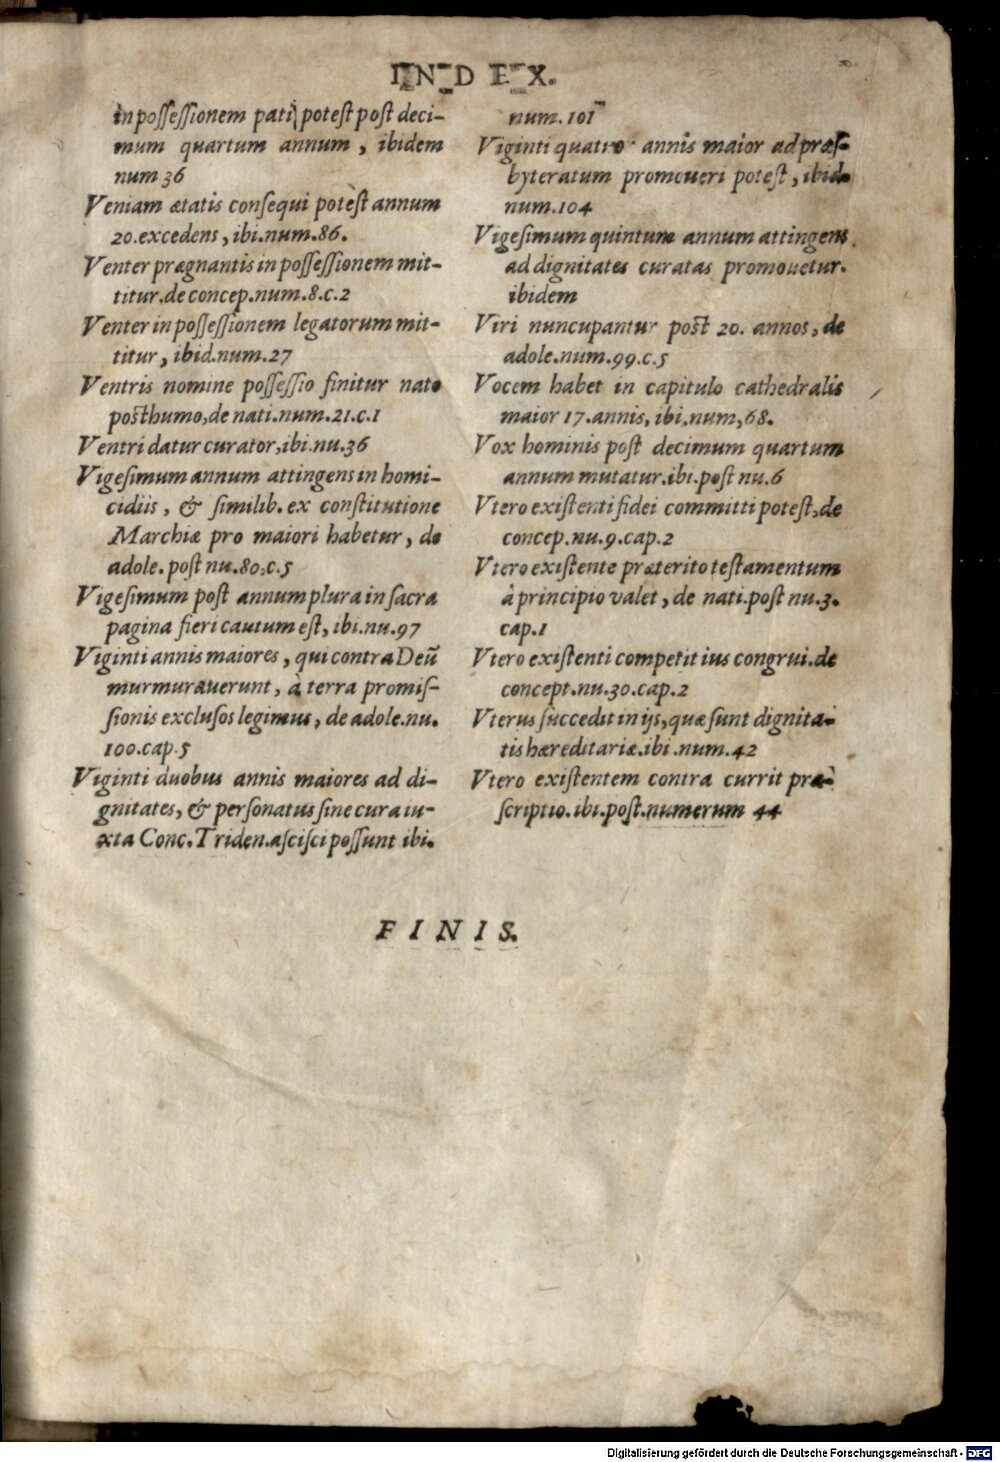 INDEX.
in possessionem pati potest post deci-
mum quartum annum, ibidem
num 36
Veniam ætatis consequi potest annum
20. excedens, ibi. num. 86.
Venter prægnantis in possessionem mit-
titur. de concep. num. 8. c. 2
Venter in possessionem legatorum mit-
titur, ibid. num. 27
Ventris nomine possessio finitur nato
posthumo, de nati. num. 21. c. 1
Ventri datur curator, ibi. nu. 36
Vigesimum annum attingens in homi-
cidiis, & similib. ex constitutione
Marchiæ pro maiori habetur, de
adole. post nu. 80. c. 5
Vigesimum post annum plura in sacra
pagina fieri cautum est, ibi. nu. 97
Viginti annis maiores, qui contra Deũ
murmurauerunt, à terra promis-
sionis exclusos legimus, de adole. nu.
100. cap. 5
Viginti duobus annis maiores ad di-
gnitates, & personatus sine cura iu-
xta Conc. Triden. ascisci possunt ibi.
num. 101
Viginti quatuor annis maior ad præs-
byteratum promoueri potest, ibid.
num. 104
Vigesimum quintum annum attingens
ad dignitates curatas promouetur.
ibidem
Viri nuncupantur post 20. annos, de
adole. num. 99. c. 5
Vocem habet in capitulo cathedralis
maior 17. annis, ibi, num, 68.
Vox hominis post decimum quartum
annum mutatur. ibi. post nu. 6
Vtero existenti fidei committi potest, de
concep. nu. 9. cap. 2
Vtero existente præterito testamentum
à principio valet, de nati. post nu. 3.
cap. 1
Vtero existenti competit ius congrui. de
concept. nu. 30. cap. 2
Vterus succedit in ijs, quæ sunt dignita-
tis hæreditariæ. ibi. num. 42
Vtero existentem contra currit præ-
scriptio. ibi. post. numerum 44
FINIS.
Digitalisierung gefördert durch die Deutsche Forschungsgemeinschaft - DFG